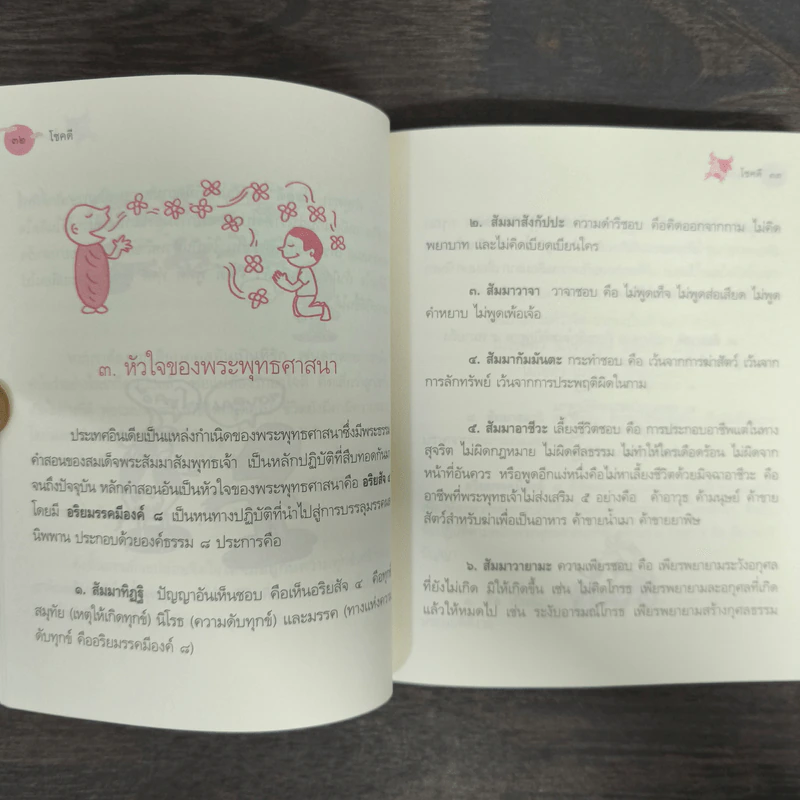 ๓๒ โชคดี
๓. หัวใจของพระพุทธศาสนา
ประเทศอินเดียเป็นแหล่งกำเนิดของพระพุทธศาสนาซึ่งมีพระธรรม
คำสอนของสมเด็จพระสัมมาสัมพุทธเจ้า เป็นหลักปฏิบัติที่สืบทอดกันมา
จนถึงปัจจุบัน หลักคำสอนอันเป็นหัวใจของพระพุทธศาสนาคือ อริยสัจ ๔
โดยมี อริยมรรคมีองค์ ๘ เป็นหนทางปฏิบัติที่นำไปสู่การบรรลุมรรคผล
นิพพาน ประกอบด้วยองค์ธรรม ๘ ประการคือ
๑. สัมมาทิฏฐิ ปัญญาอันเห็นชอบ คือเห็นอริยสัจ ๔ คือทุกข์
สมุทัย (เหตุให้เกิดทุกข์) นิโรธ (ความดับทุกข์) และมรรค (ทางแห่งความ
ดับทุกข์ คืออริยมรรคมีองค์ ๘)
โชคดี ๓๓
๒. สัมมาสังกัปปะ ความดำริชอบ คือคิดออกจากกาม ไม่คิด
พยาบาท และไม่คิดเบียดเบียนใคร
๓. สัมมาวาจา วาจาชอบ คือ ไม่พูดเท็จ ไม่พูดส่อเสียด ไม่พูด
คำหยาบ ไม่พูดเพ้อเจ้อ
๔. สัมมากัมมันตะ กระทำชอบ คือ เว้นจากการฆ่าสัตว์ เว้นจาก
การลักทรัพย์ เว้นจากการประพฤติผิดในกาม
๕. สัมมาอาชีวะ เลี้ยงชีวิตชอบ คือ การประกอบอาชีพแต่ในทาง
สุจริต ไม่ผิดกฎหมาย ไม่ผิดศีลธรรม ไม่ทำให้ใครเดือดร้อน ไม่ผิดจาก
หน้าที่อันควร หรือพูดอีกแง่หนึ่งคือไม่หาเลี้ยงชีวิตด้วยมิจฉาอาชีวะ คือ
อาชีพที่พระพุทธเจ้าไม่ส่งเสริม ๕ อย่างคือ ค้าอาวุธ ค้ามนุษย์ ค้าขาย
สัตว์สำหรับฆ่าเพื่อเป็นอาหาร ค้าขายน้ำเมา ค้าขายยาพิษ
๖. สัมมาวายามะ ความเพียรชอบ คือ เพียรพยายามระวังอกุศล
ที่ยังไม่เกิด มิให้เกิดขึ้น เช่น ไม่คิดโกรธ เพียรพยายามละอกุศลที่เกิด
แล้วให้หมดไป เช่น ระงับอารมณ์โกรธ เพียรพยายามสร้างกุศลธรรม